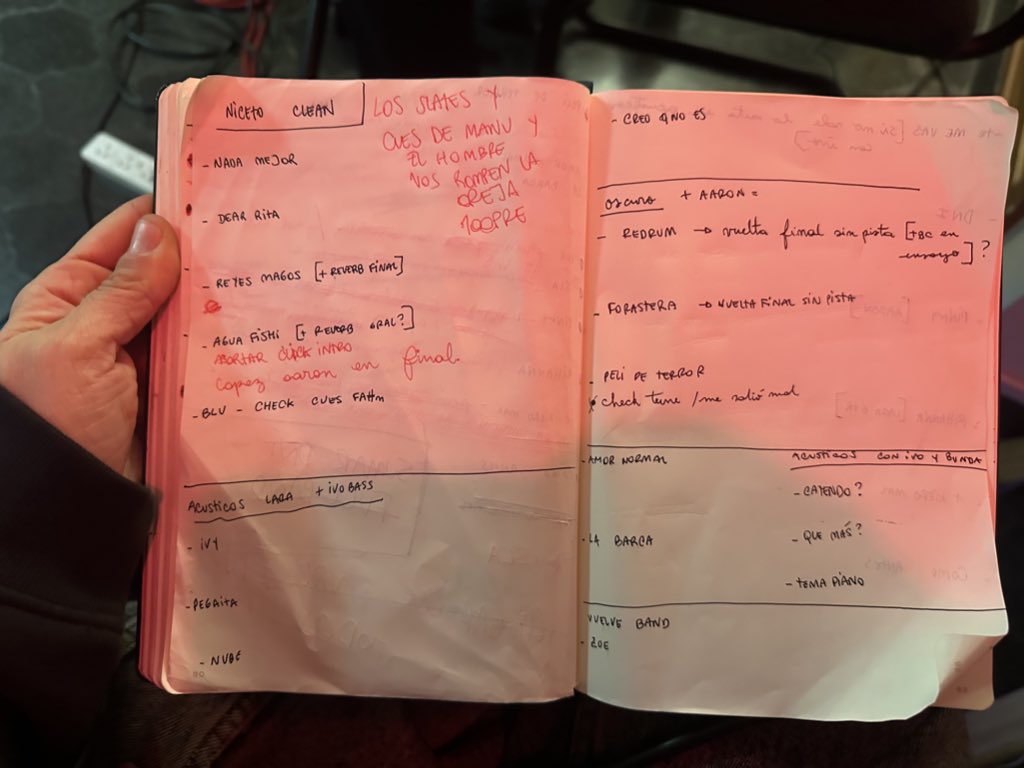 NICETO CLEAN
LOS SLATES Y
CUES DE MANU Y
EL HOMBRE
NOS ROMPEN LA
OREJA
100PRE
- NADA MEJOR
- DEAR RITA
- REYES MAGOS [+ REVERB FINAL]
- AGUA FISHI [+ REVERB GRAL?]
ACORTAR CLICK INTRO
Copez aaron en final.
- BLU - CHECK CUES FAHM
ACUSTICOS LARA + IVO BASS
- IVY
- PEGAITA
- NUBE
- CREO Q NO ES
OSCURO + AARON =
- REDRUM → vuelta final sin pista [TBC en
ensayo] ?
- FORASTERA → VUELTA FINAL SIN PISTA
- PELI DE TERROR
check tune / me salió mal
- AMOR NORMAL
- LA BARCA
ACUSTICOS CON IVO Y BUNDA
- CAYENDO?
- QUE MÁS?
- TEMA PIANO
VUELVE BAND
- ZOE